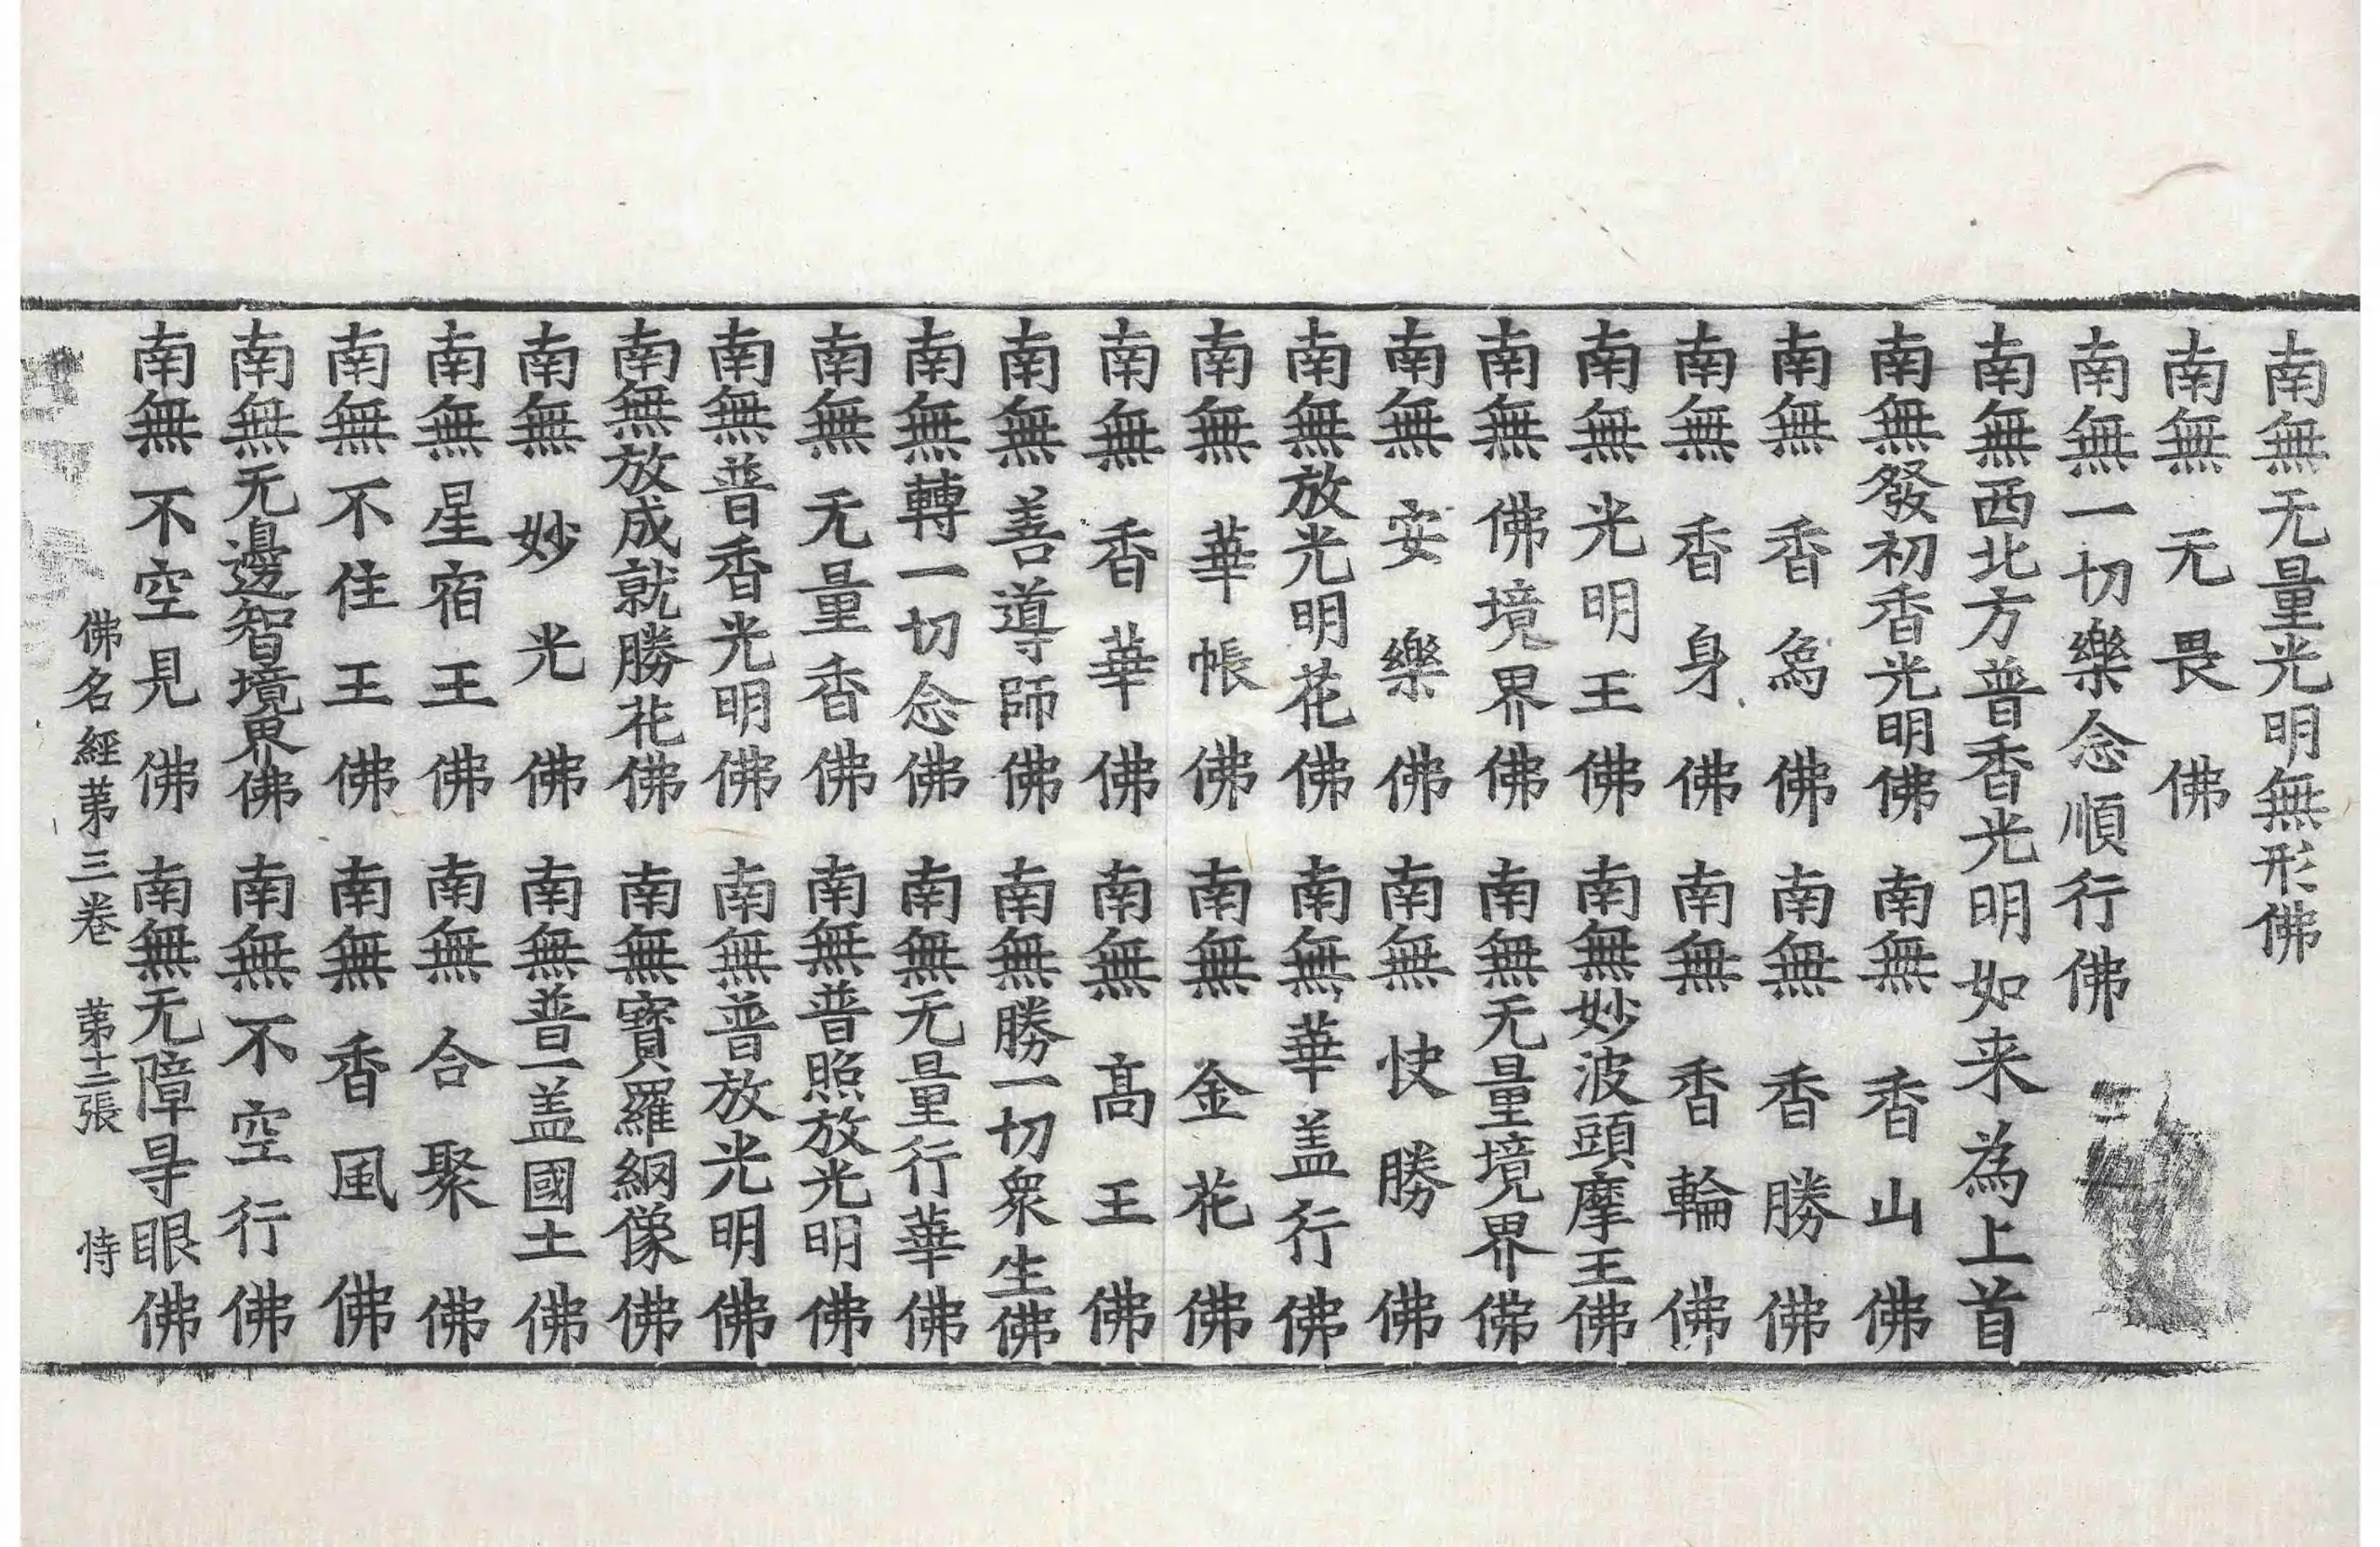 南無无量光明無形佛
南無无畏佛
南無一切樂念順行佛
南無西北方普香光明如来為上首
南無發初香光明佛 南無香山佛
南無香爲佛 南無香勝佛
南無香身佛 南無香輪佛
南無光明王佛 南無妙波頭摩王佛
南無佛境界佛 南無无量境界佛
南無安樂佛 南無快勝佛
南無放光明花佛 南無華盖行佛
南無華帳佛 南無金花佛
南無香華佛 南無髙王佛
南無善導師佛 南無勝一切衆生佛
南無轉一切念佛 南無无量行華佛
南無无量香佛 南無普照放光明佛
南無普香光明佛 南無普放光明佛
南無放成就勝花佛 南無寶羅網像佛
南無妙光佛 南無普一盖國土佛
南無星宿王佛 南無合聚佛
南無不住王佛 南無香風佛
南無无邊智境界佛 南無不空行佛
南無不空見佛 南無无障㝵眼佛
佛名經苐三卷 苐十二張 恃